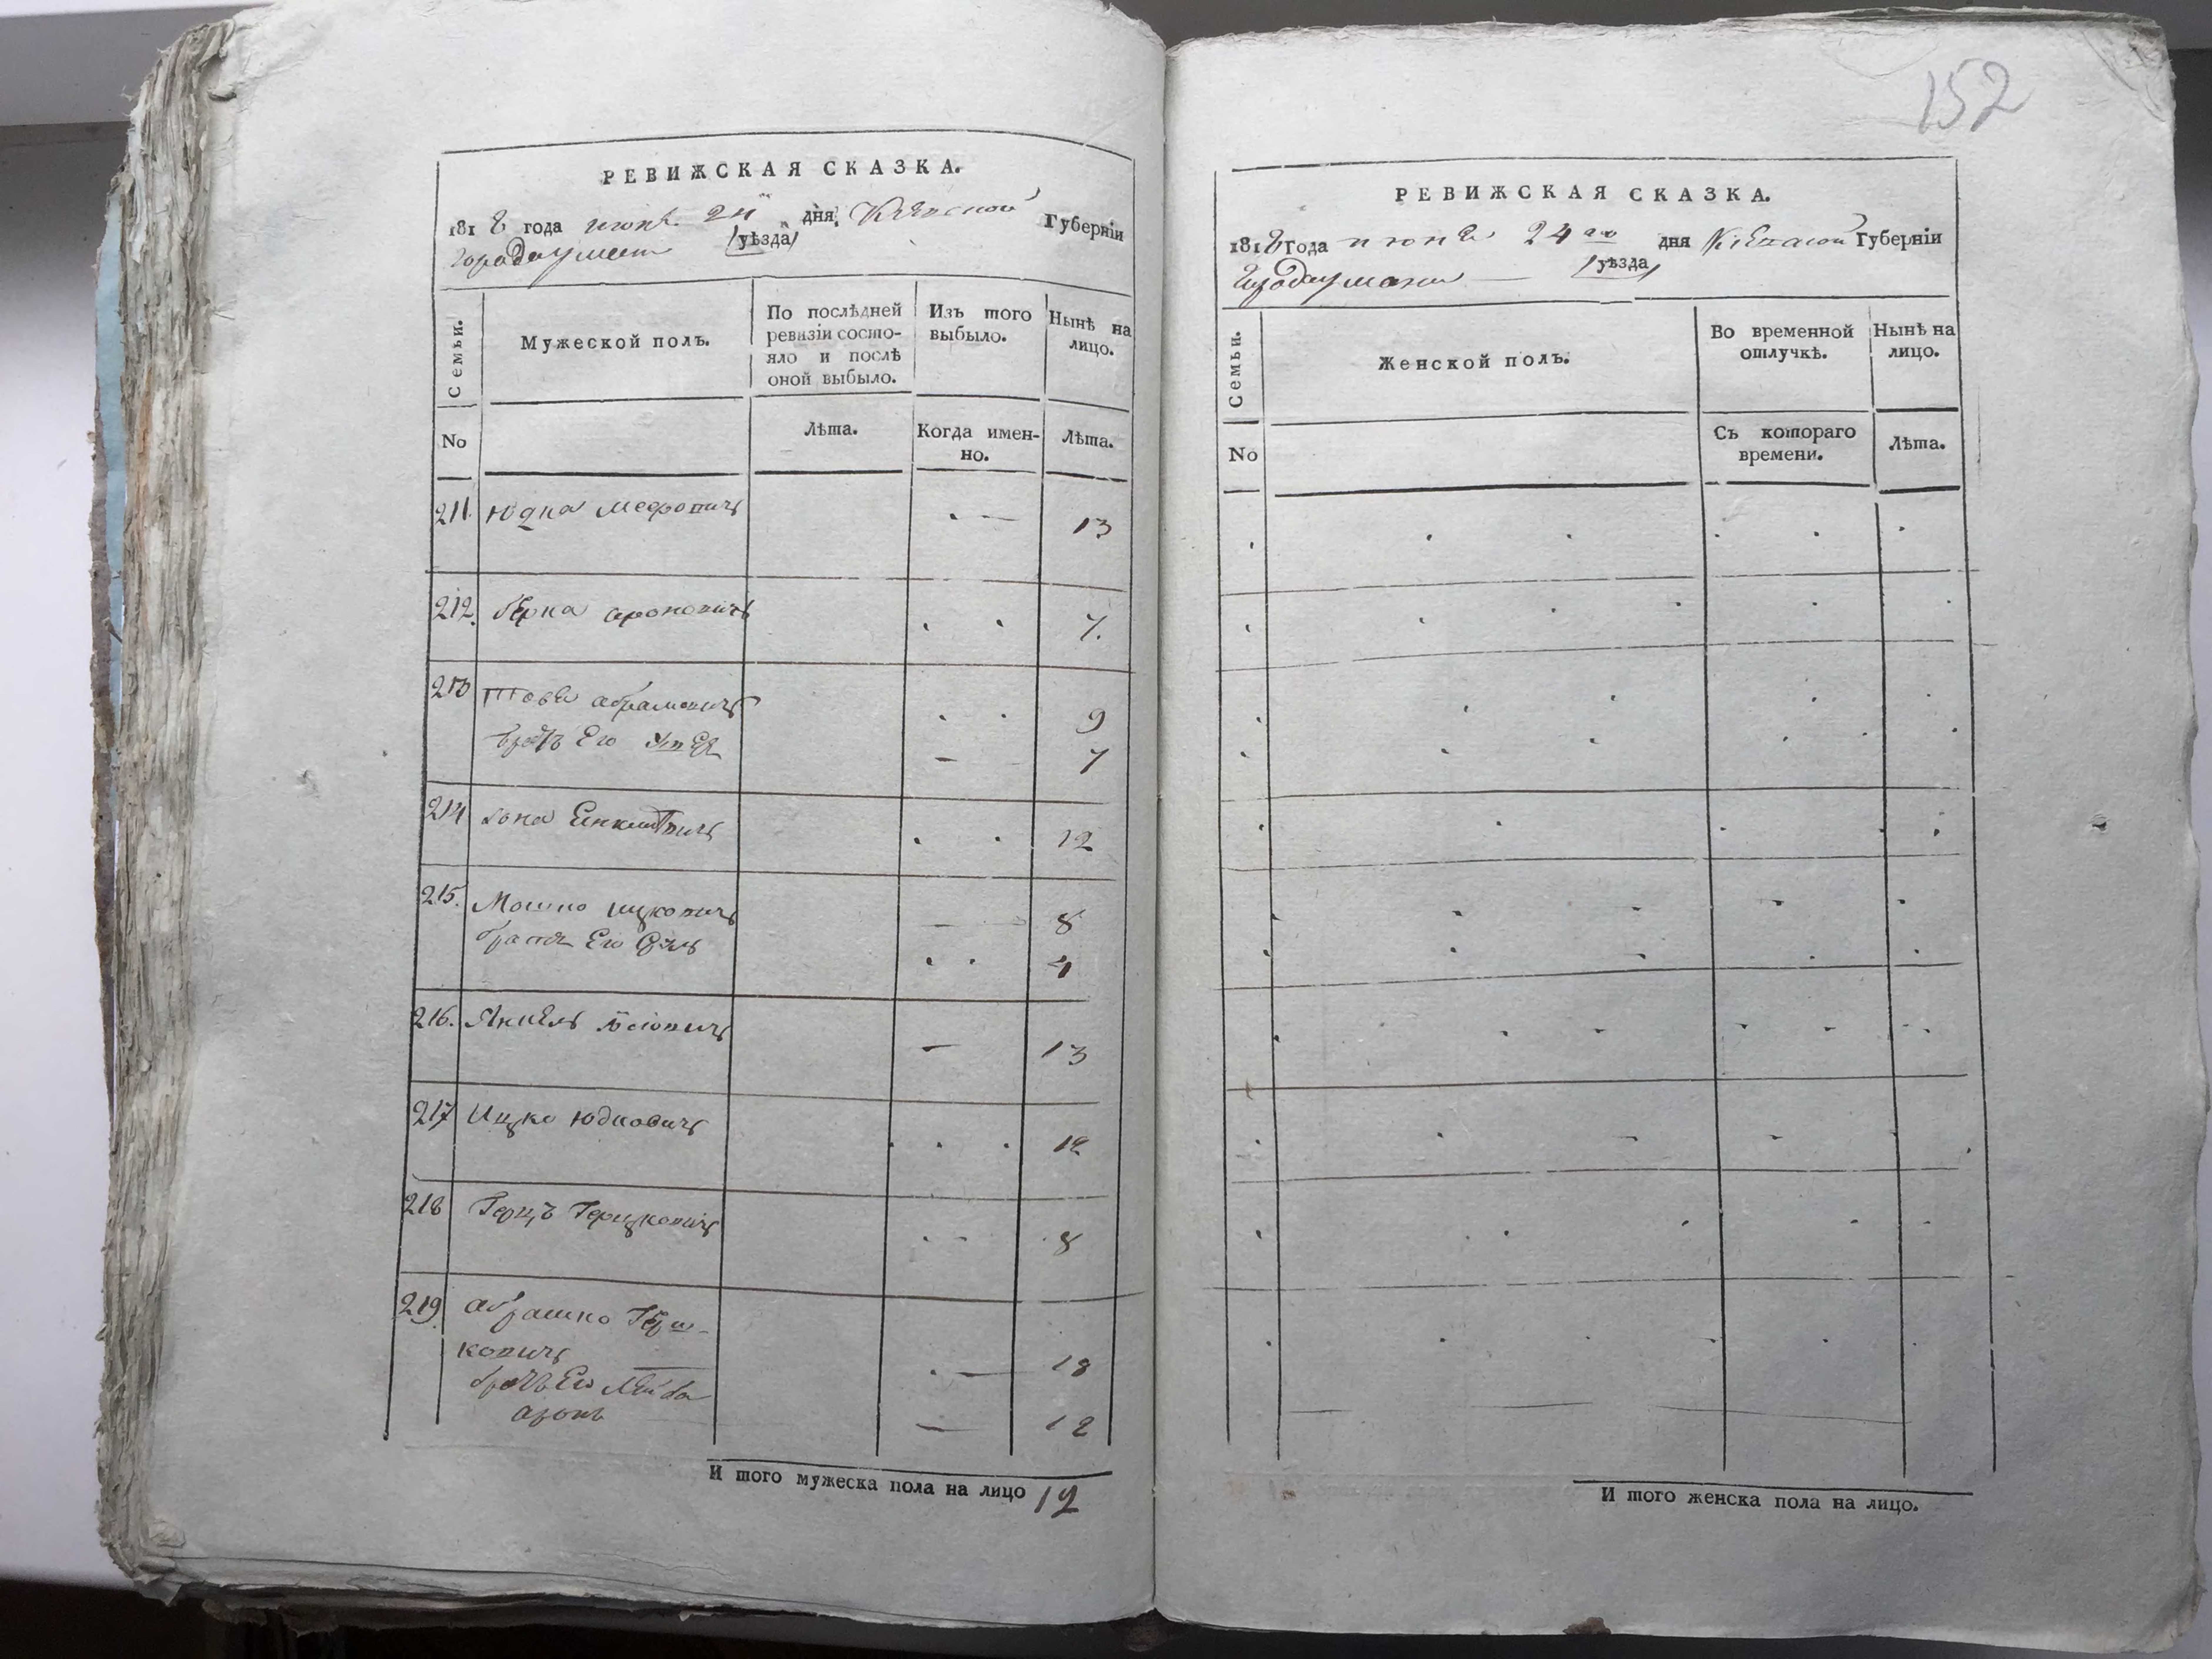 152
РЕВИЖСКАЯ СКАЗКА.
1818 года июня 24 дня Киевской Губерніи
города уманя уѣзда
Семьи.
Мужеской полъ.
По послѣдней ревизіи состояло и послѣ оной выбыло.
Изъ того выбыло.
Нынѣ на лицо.
No
Лѣта.
Когда именно.
Лѣта.
211. Юдка 13
212. берка ароновичъ 7.
213 товія абрамовичъ 9
братъ Его 7
214 12
215. Мошко ицковичъ 8
братъ Его 4
216. Янкель 13
217 Ицко Юдковичъ 12
218 Герцъ Герцковичъ 8
219. абрашко Герш-
ковичъ 18
братъ Его Лейба
аронъ 12
И того мужеска пола на лицо 12
РЕВИЖСКАЯ СКАЗКА.
1818 года июня 24 го дня Киевской Губерніи
города уманя уѣзда
Семьи.
Женской полъ.
Во временной отлучкѣ.
Нынѣ на лицо.
No
Съ котораго времени.
Лѣта.
И того женска пола на лицо.